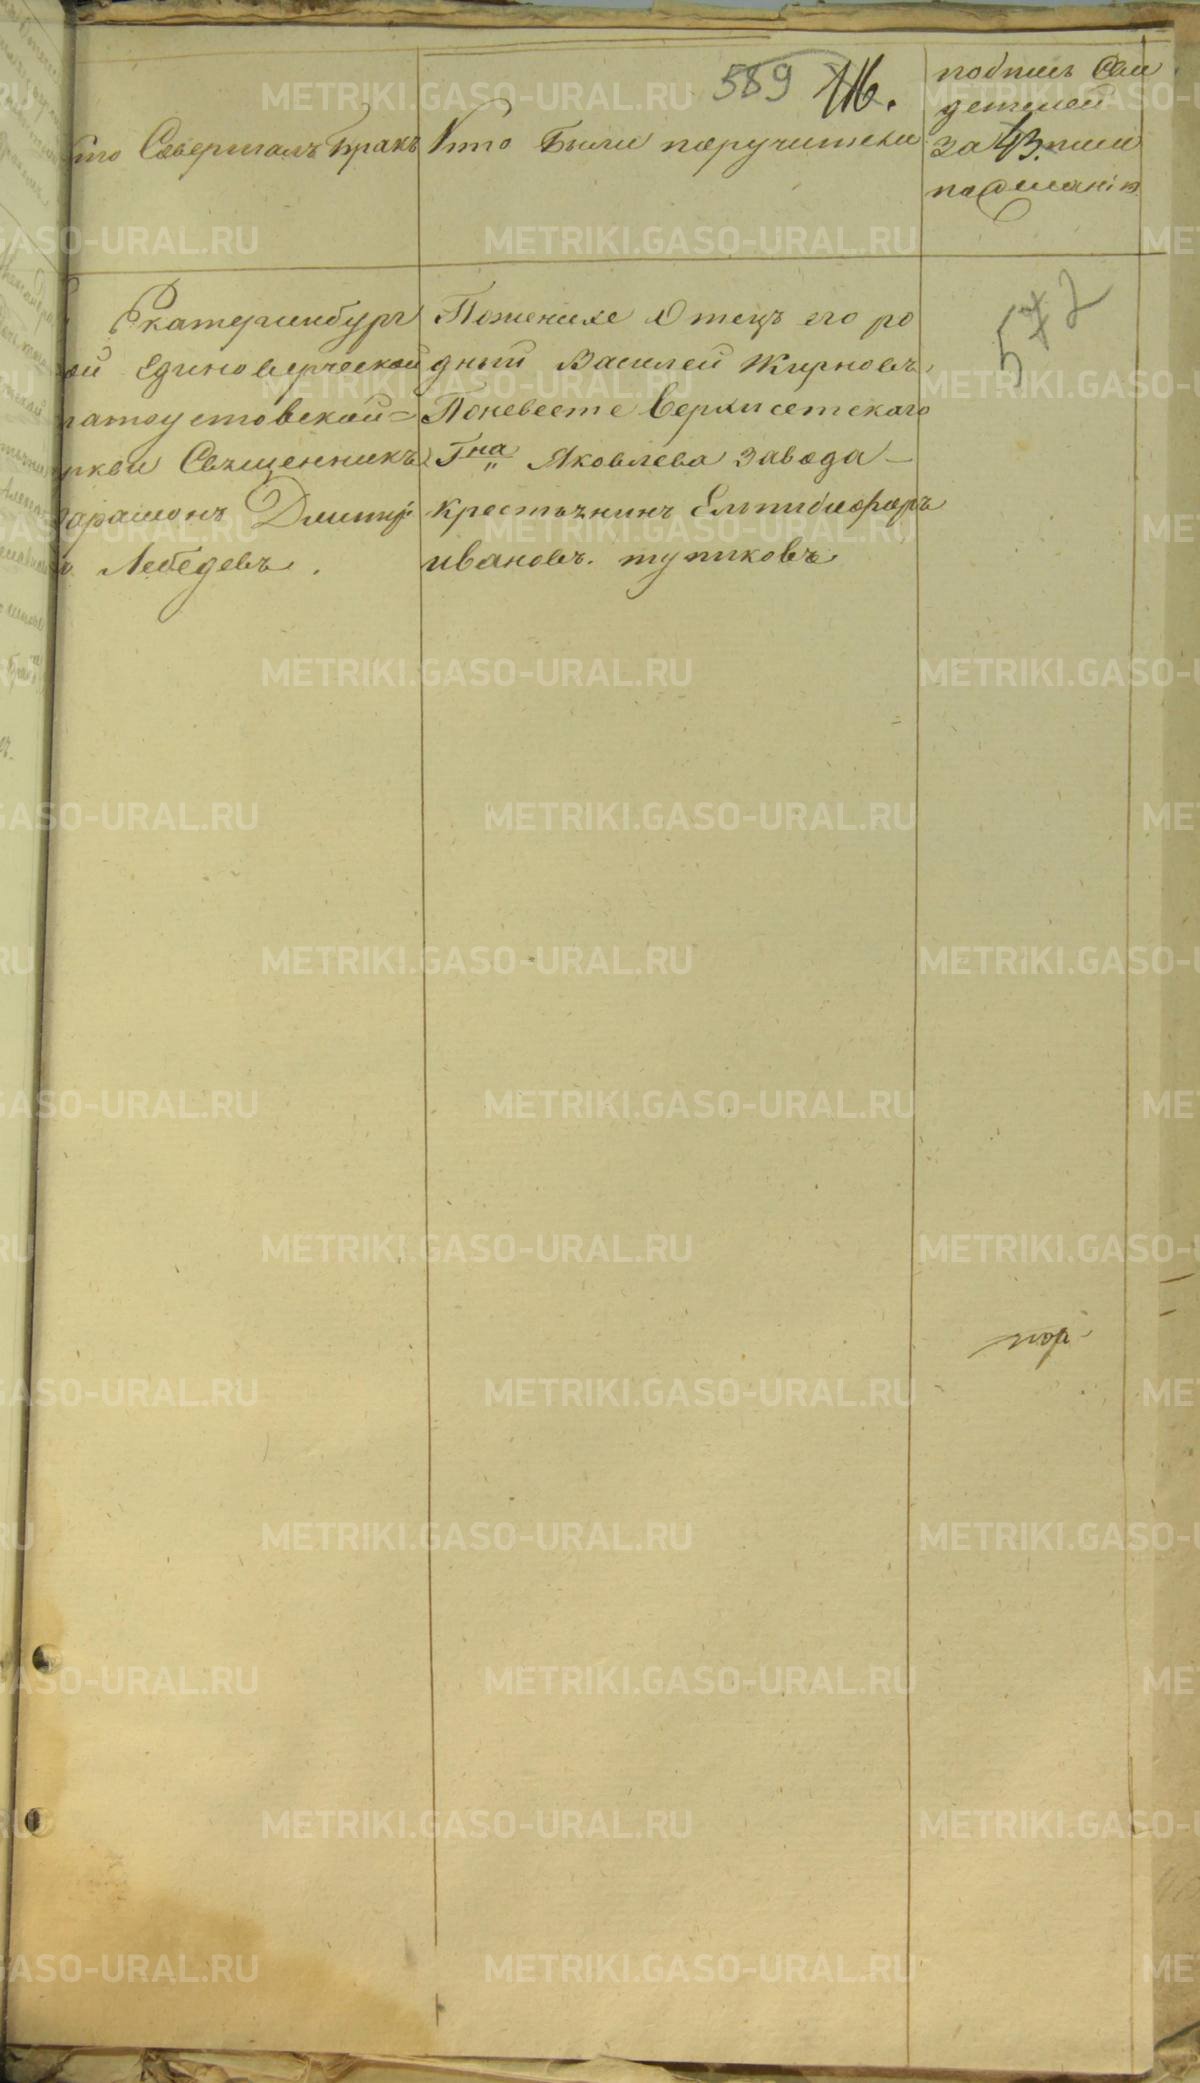 589 116.
то Совершалъ Бракъ
Кто Были поручители
подпись Сви
детелей
за 43. писи
по желанію
Екатеринбург
ой Единоверческой
латоустовской=
ркви Священникъ
арамонъ Димитрі
Лебедевъ.
Поженихе Отецъ его ро
дный Василей Жирновъ,
Поневесте Верхисетскаго
Гна Яковлева Завода—
крестьянинъ Елпидифоръ
ивановъ. тупиковъ
572